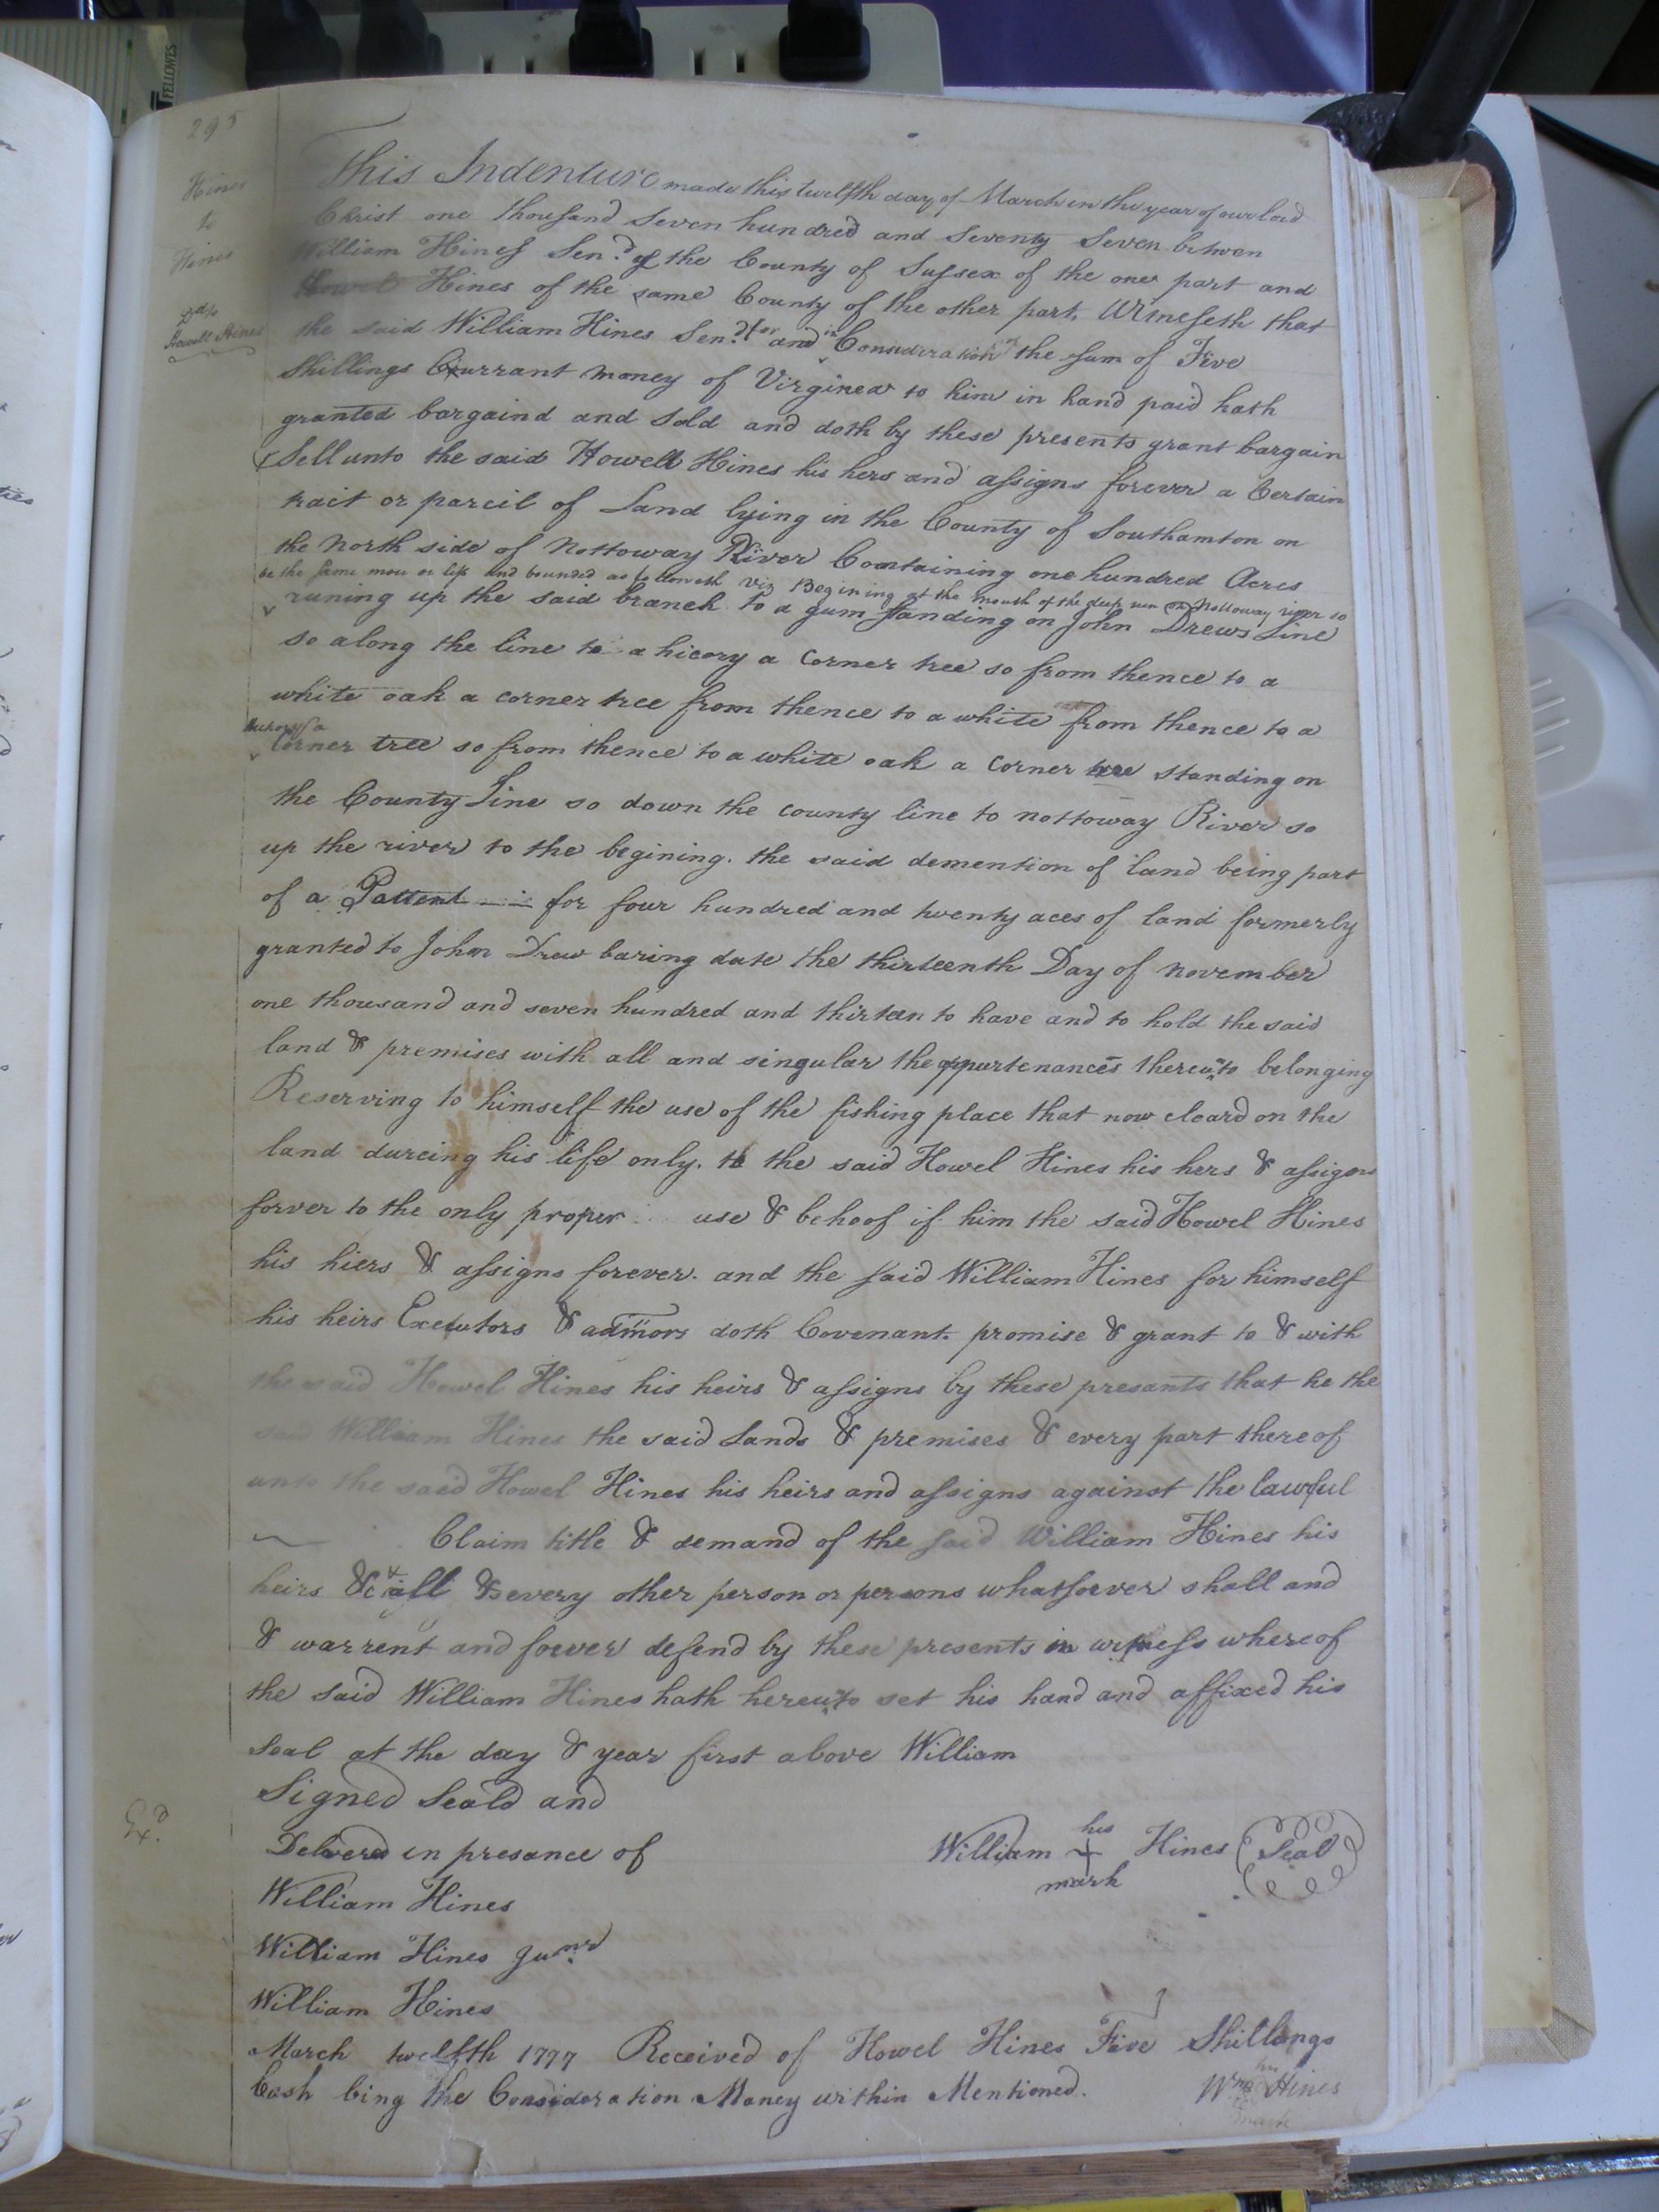 FELLOWES
295
Hines
to
Hines
Dd to
Howell Hines
This Indenture made this twelfth day of March in the year of our lord
Christ one thousand seven hundred and seventy seven betwen
William Hines Senr. of the County of Sussex of the one part and
Howel Hines of the same County of the other part, Witneseth that
the said William Hines Senr. for and in Consideration of the sum of Five
Shillings Currant money of Virginea to him in hand paid hath
granted bargaind and Sold and doth by these presents grant bargain
& Sell unto the said Howell Hines his hers and assigns forever a Certain
tract or parcil of Land lying in the County of Southamton on
the North side of Nottoway River Containing one hundred Acres
be the same more or less and bounded as followeth Viz Begining at the mouth of the deep run on Nottoway river so
runing up the said branch to a gum standing on John Drews Line
so along the line to a hicory a Corner tree so from thence to a
white oak a corner tree from thence to a white oak from thence to a
hickory a
Corner tree so from thence to a white oak a Corner tree standing on
the County Line so down the county line to nottoway River so
up the river to the begining. the said demention of land being part
of a Pattent for four hundred and twenty aces of land formerly
granted to John Drew baring date the thirteenth Day of november
one thousand and seven hundred and thirteen to have and to hold the said
land & premises with all and singular the appurtenances thereunto belonging
Reserving to himself the use of the fishing place that now cleard on the
land dureing his life only. to the said Howel Hines his hers & assigns
forver to the only proper use & behoof if him the said Howel Hines
his hiers & assigns forever. and the said William Hines for himself
his heirs Executors & admors doth Covenant promise & grant to & with
the said Howel Hines his heirs & assigns by these presants that he the
said William Hines the said Lands & premises & every part thereof
unto the said Howel Hines his heirs and assigns against the lawful
Claim title & demand of the said William Hines his
heirs &c & all & every other person or persons whatsoever shall and
& warrent and foever defend by these presents in witness whereof
the said William Hines hath hereunto set his hand and affixed his
Seal at the day & year first above William
Signed Seald and
Delivered in presance of
William his + mark Hines (Seal)
Exd.
William Hines
William Hines Junr
William Hines
March twelfth 1777 Received of Howel Hines Five Shillings
Cash bing the Consideration Money within Mentioned.
Wm his Hines
mark